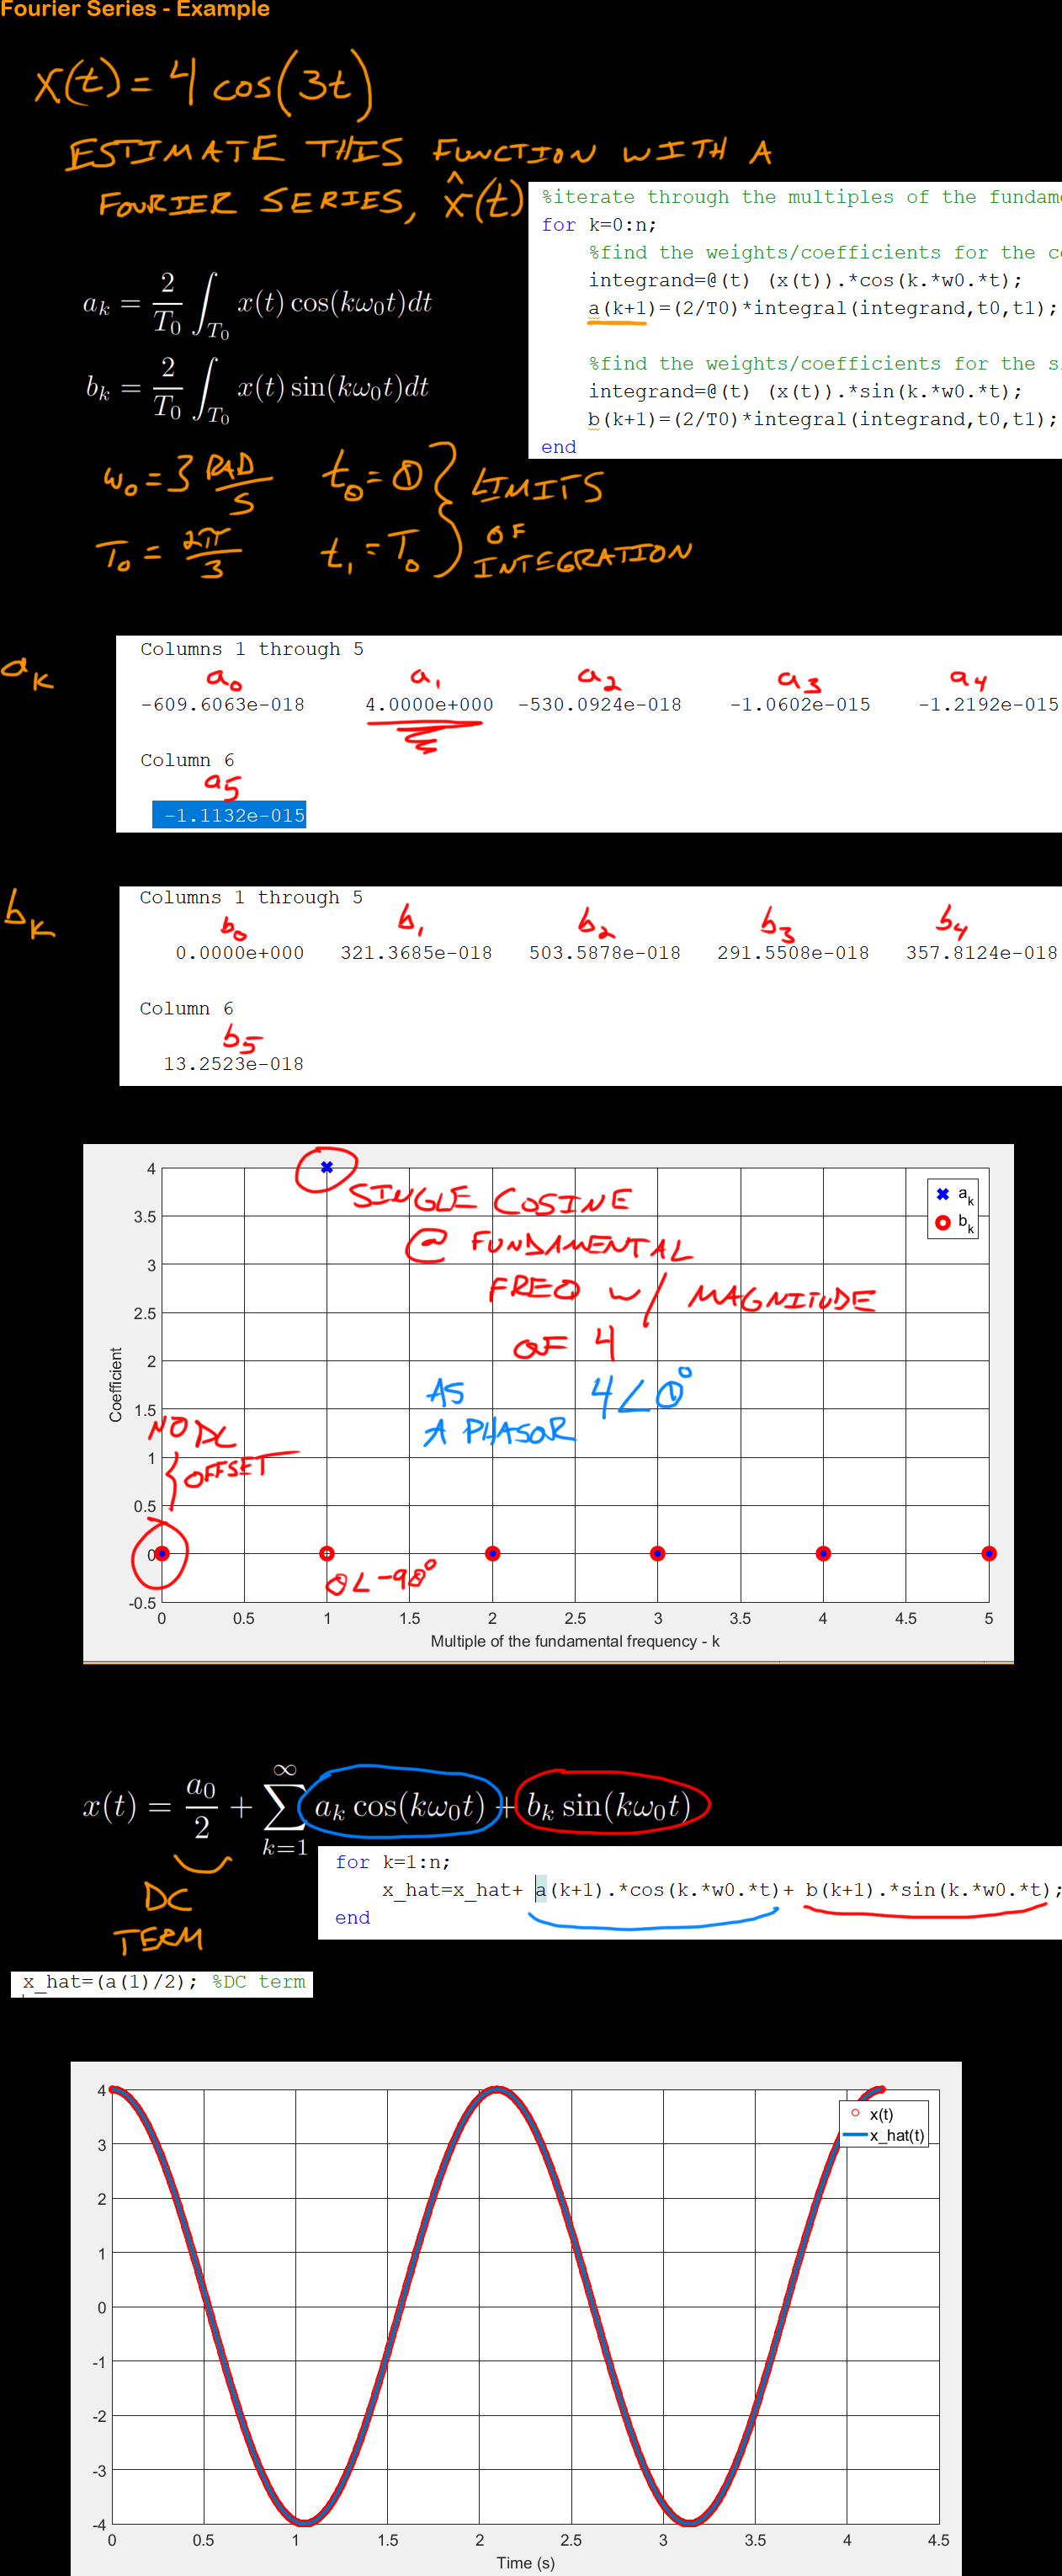 Fourier Series - Example
x(t) = 4 cos(3t)
ESTIMATE THIS FUNCTION WITH A
FOURIER SERIES, x̂(t)
%iterate through the multiples of the fundam
for k=0:n;
%find the weights/coefficients for the c
integrand=@(t) (x(t)).*cos(k.*w0.*t);
a(k+1)=(2/T0)*integral(integrand,t0,t1);
%find the weights/coefficients for the s
integrand=@(t) (x(t)).*sin(k.*w0.*t);
b(k+1)=(2/T0)*integral(integrand,t0,t1);
end
a_k = 2/T_0 ∫_{T_0} x(t) cos(kω_0t)dt
b_k = 2/T_0 ∫_{T_0} x(t) sin(kω_0t)dt
ω_0 = 3 RAD/S t_0 = 0 } LIMITS
T_0 = 2π/3 t_1 = T_0 } OF INTEGRATION
a_k
Columns 1 through 5
a_0 a_1 a_2 a_3 a_4
-609.6063e-018 4.0000e+000 -530.0924e-018 -1.0602e-015 -1.2192e-015
Column 6
a_5
-1.1132e-015
b_k
Columns 1 through 5
b_0 b_1 b_2 b_3 b_4
0.0000e+000 321.3685e-018 503.5878e-018 291.5508e-018 357.8124e-018
Column 6
b_5
13.2523e-018
4
3.5
3
2.5
2
1.5
1
0.5
0
-0.5
Coefficient
a_k
b_k
SINGLE COSINE
@ FUNDAMENTAL
FREQ w/ MAGNITUDE
OF 4
AS 4∠0°
A PHASOR
NO DC
OFFSET
0∠-90°
0 0.5 1 1.5 2 2.5 3 3.5 4 4.5 5
Multiple of the fundamental frequency - k
x(t) = a_0/2 + ∑_{k=1}^{∞} a_k cos(kω_0t) + b_k sin(kω_0t)
DC
TERM
for k=1:n;
x_hat=x_hat+ a(k+1).*cos(k.*w0.*t)+ b(k+1).*sin(k.*w0.*t);
end
x_hat=(a(1)/2); %DC term
4
3
2
1
0
-1
-2
-3
-4
x(t)
x_hat(t)
0 0.5 1 1.5 2 2.5 3 3.5 4 4.5
Time (s)